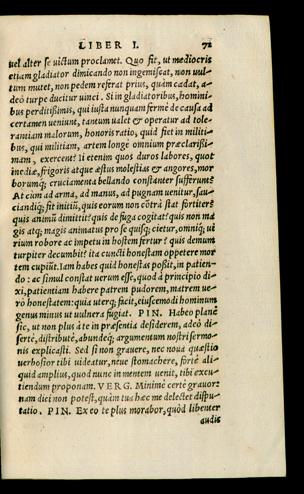 LIBER I. 71
uel alter se uictum proclamet. Quo fit, ut mediocris
etiam gladiator dimicando non ingemiscat, non uul-
tum mutet, non pedem referat prius, quàm cadat, a-
deò turpe ducitur uinci. Si in gladiatoribus, homini-
bus perditißimis, qui iusta nunquam fermè de causa ad
certamen ueniunt, tantum ualet & operatur ad tole-
rantiam malorum, honoris ratio, quid fiet in militi-
bus, qui militiam, artem longè omnium præclarißi-
mam, exercent? Ij etenim quos duros labores, quot
inediæ, frigoris atque æstus molestias & angores, mor
borumq; cruciamenta bellando constanter sufferunt?
At cum ad arma, ad manus, ad pugnam uenitur, sau-
ciandiq; fit initiũ, quis eorum non cõtrà stat fortiter?
quis animũ dimittit? quis de fuga cogitat? quis non ma
gis atq; magis animatus pro se quisq; cietur, omniq; ui
rium robore ac impetu in hostem fertur? quis demum
turpiter decumbit? ita cuncti honestam oppetere mor
tem cupiũt. Iam habes quid honestas poßit, in patien-
do: ac simul constat uerum esse, quod à principio di-
xi, patientiam habere patrem pudorem, matrem ue-
rò honestatem: quia uterq; facit, eiuscemodi hominum
genus minus ut uulnera fugiat. PIN. Habeo planè
sic, ut non plus à te in præsentia desiderem, adeò di-
sertè, distributè, abundeq; argumentum nostri sermo-
nis explicasti. Sed si non grauere, nec noua quæstio
uerbosior tibi uideatur, neue stomachere, fortè ali-
quid amplius, quod nunc in mentem uenit, tibi excu-
tiendum proponam. VERG. Minimè certè grauor:
nam dici non potest, quàm tua hæc me delectet dispu-
tatio. PIN. Ex eo te plus morabor, quòd libenter
audis